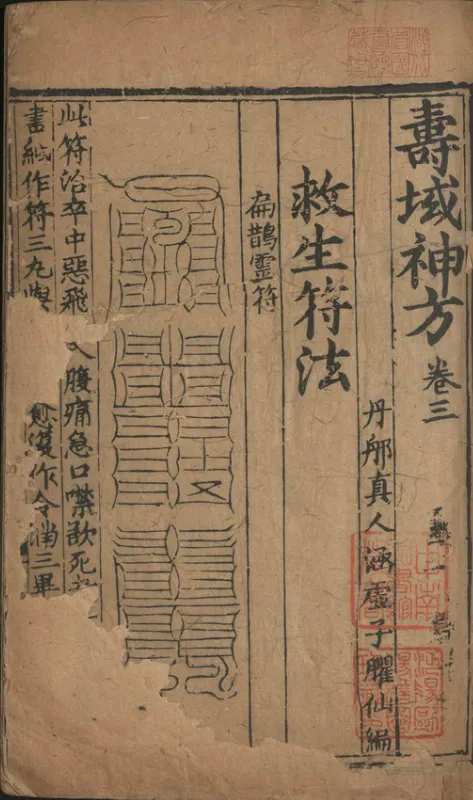 壽域神方 卷三
丹邱真人涵虛子臞仙編
救生符法
扁鵲靈符
此符治卒中惡飛 入腹痛急口噤欲死
書紙作符三丸 愈 作令滿三畢